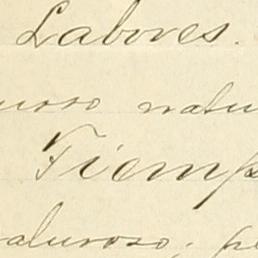 Labores.
uroso natu
Tiemp
aluroso; pe